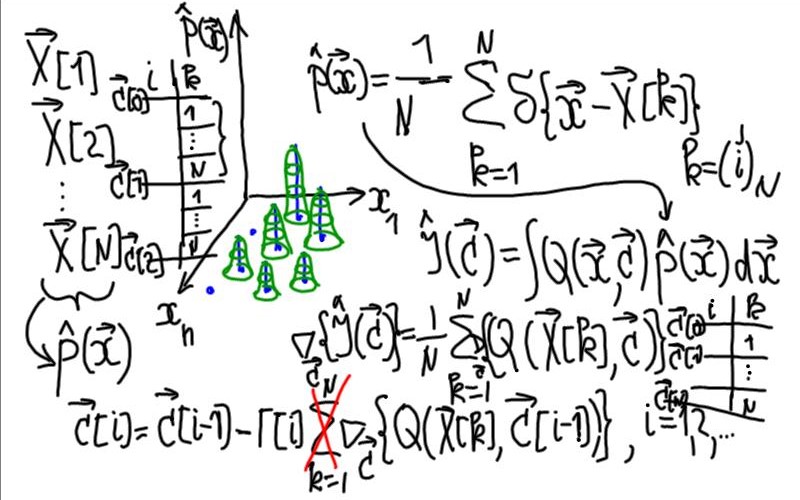 X⃗[1]
X⃗[2]
⋮
X⃗[N]
p̂(x⃗)
i | k
c⃗[0]
1
⋮
N
c⃗[1]
1
⋮
N
c⃗[2]
p̂(x⃗)
x₁
xₙ
p̂(x⃗) = 1/N ∑_{k=1}^{N} δ{x⃗ − X⃗[k]}
k = (i)_N
Ĵ(c⃗) = ∫Q(x⃗, c⃗) p̂(x⃗) dx⃗
∇_c⃗{Ĵ(c⃗)} = 1/N ∑_{k=1}^{N} ∇_c⃗{Q(X⃗[k], c⃗)}
i | k
c⃗[0]
1
c⃗[1]
⋮
N
c⃗[i] = c⃗[i-1] − Γ[i] ∑_{k=1}^{N} ∇_c⃗{Q(X⃗[k], c⃗[i-1])}, i = 1, 2, ...